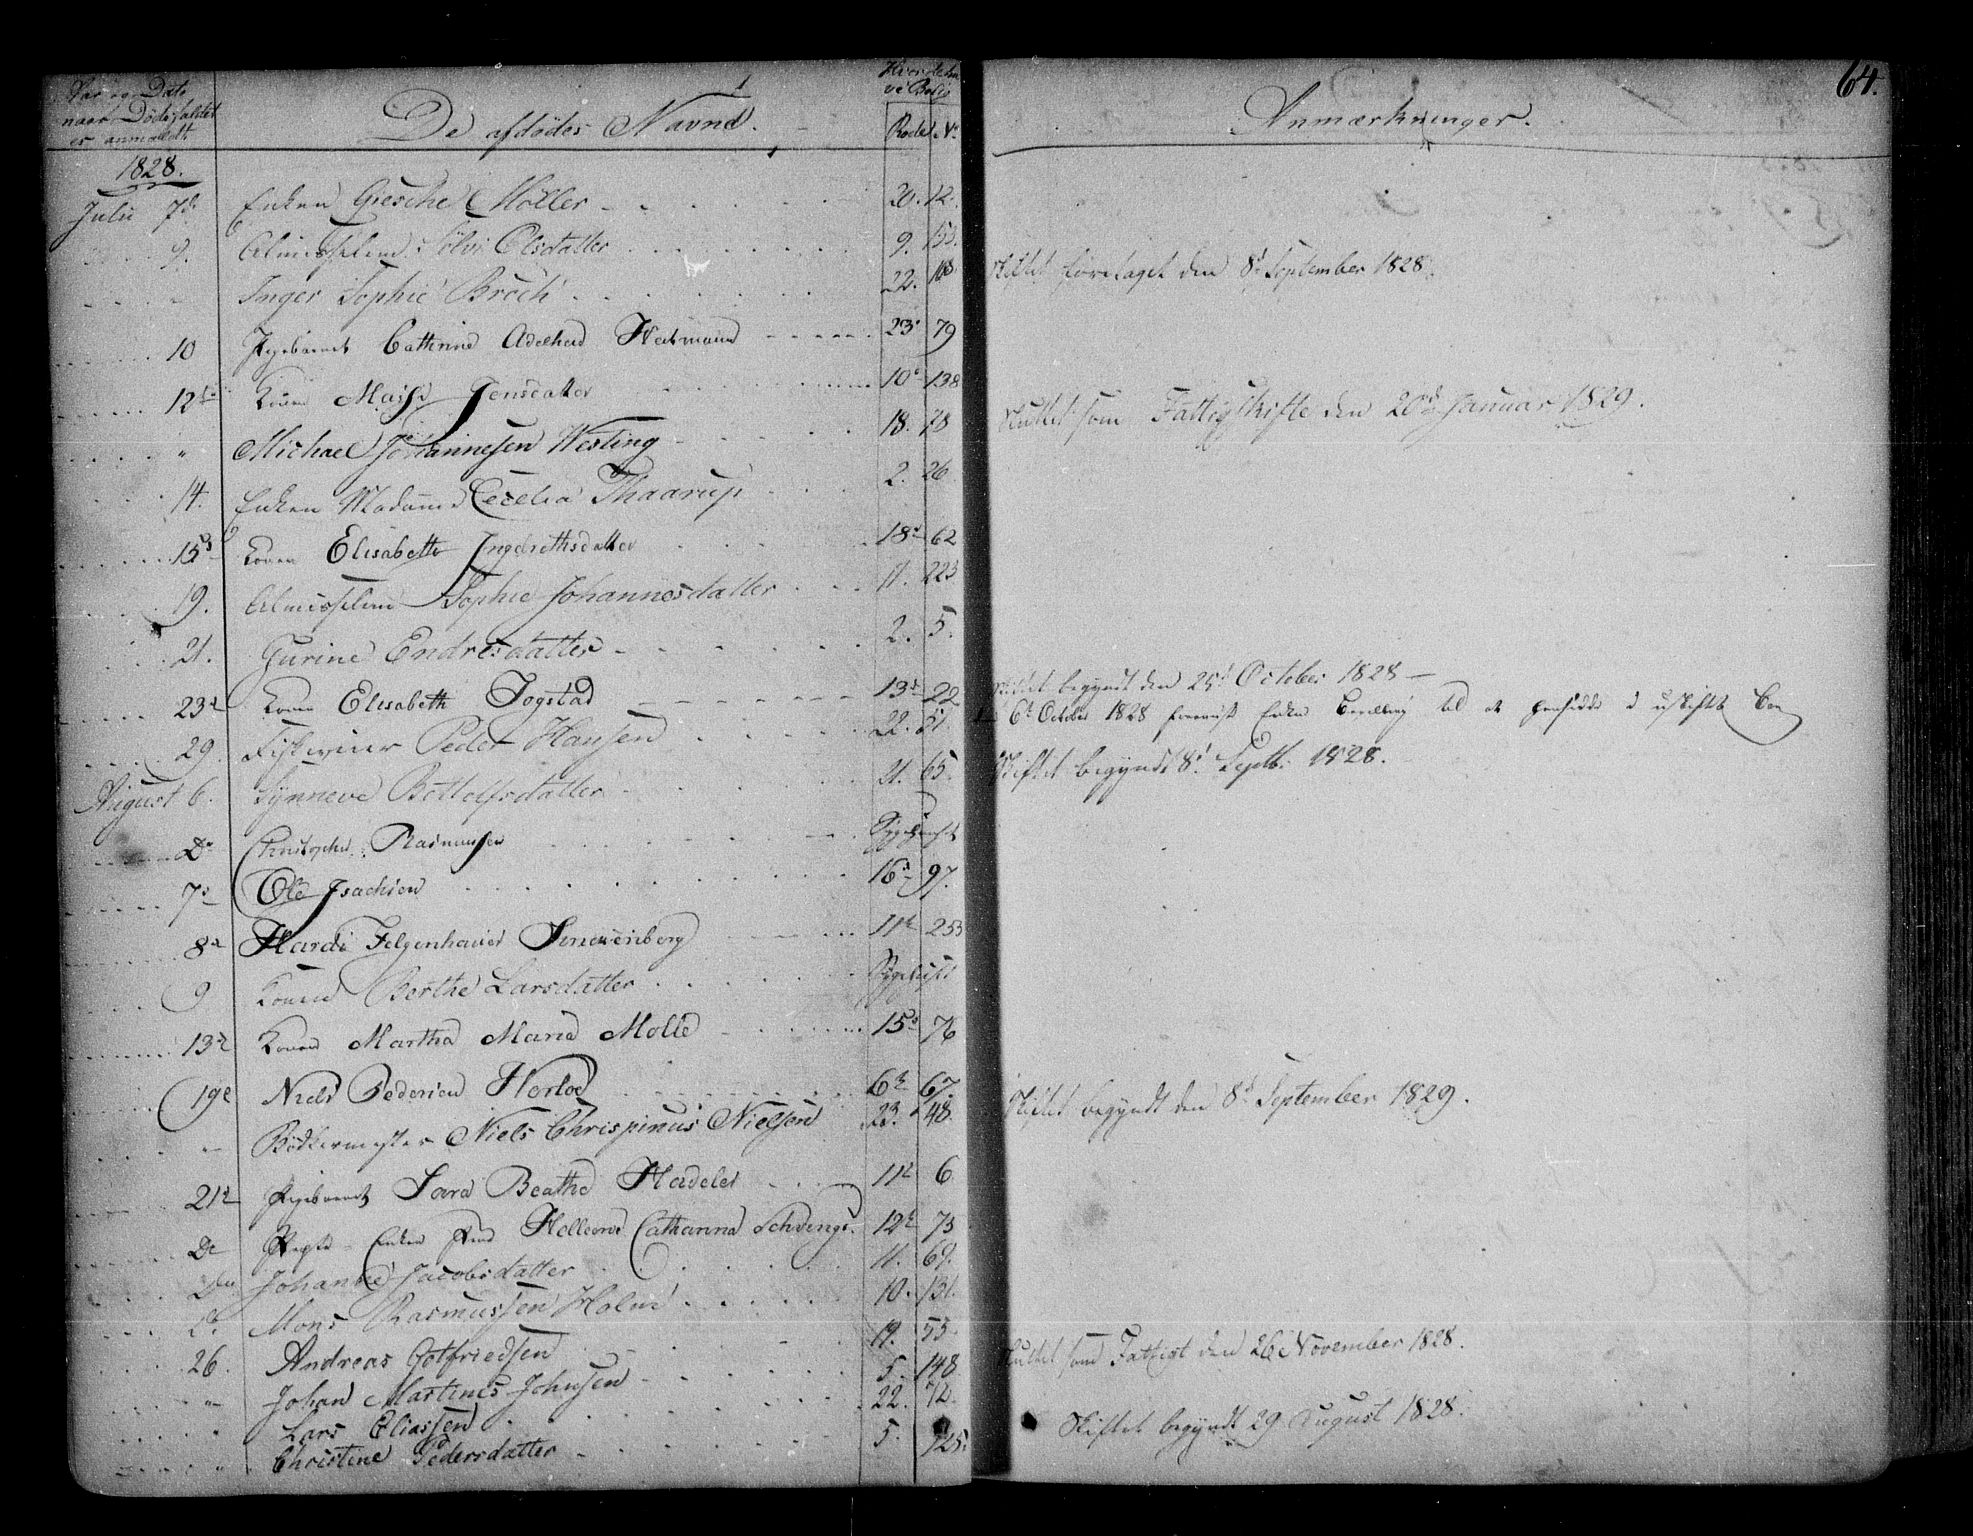 64.
Aar og Dato
naar Dødsfaldet
er anmældt
De afdødes Navne.
Hvor de have Bolig
Rode No
Anmærkninger.
1828.
Julii 7de Enken Giesche Møller 20. 12.
9. Almisselem Sølvi Olsdatter 9. 153.
" Inger Sophie Broch 22.
Skiftet foretaget den 8de September 1828.
10 Pigebarnet Cathrine Adelheid 23 79
12te Konen Jensdatter 10 138
" Michael Johannesen Westing 18. 78
Sluttet som Fattigskifte den 20de Januar 1829.
14. Enken Madame Cecelia Thaarup 2. 26
15de Konen Elisabeth Ingebrethsdatter 18 62
19. Almisselem Sophie Johannesdatter 11. 223
21. Jurine Endresdatter 2. 5.
23de Konen Elisabeth Sogstad 13 22
Skiftet begyndt den 25de October 1828
29. Peder Hansen 22. 51.
6te October 1828 foreviist Enken Bevilling til at hensidde i uskiftet Boe
August 6. Synneve Bottolfsdatter 21. 65.
Skiftet begyndt 8de Septbr. 1828.
Do Christopher Rasmussen Sygehuset
7de Ole Isachsen 16 97.
8de Hardi Felgenhauer 11 253
9 Konen Berthe Larsdatter Sygehuset
13de Konen Martha Maria Molle 15 76
19de Niels Pedersen Herlof 6 67.
Skiftet begyndt den 8de September 1829.
" Bødkermester Niels Chrispinus Nielsen 23. 48.
21de Pigebarnet Sara Beathe Hadeler 11 6
Do Enken Cathanna 12 73
Do Johanne Jacobsdatter 11. 69.
Do Mons Rasmussen Holm 10. 131.
26. Andreas Gotfriedsen 19. 53.
Sluttet som Fattigt den 26 November 1828.
" Johan Martines Johnsen 5. 148
" Lars Eliassen 22. 72.
Skiftet begyndt 29 August 1828.
" Christine Pedersdatter 5. 125.